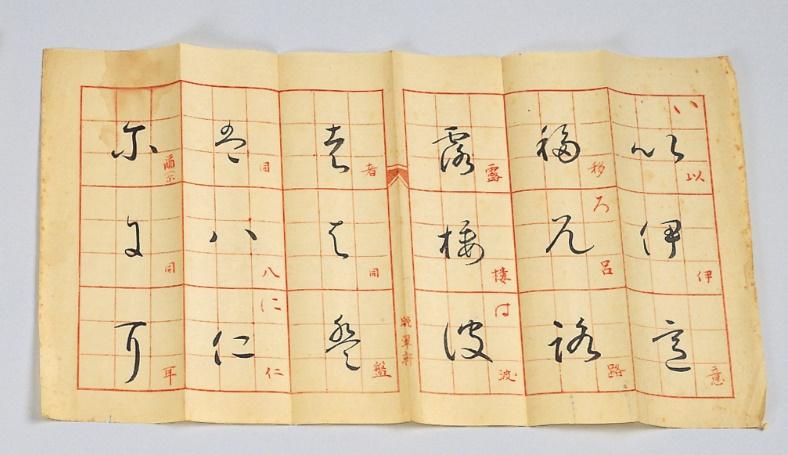 い
以 以
伊 伊
意 意
移 移
ろ
呂 呂
路 路
露 露
楼 樓
は
波 波
者 者
は 同
盤 盤
同
八 八
に
仁 仁
尓 爾尓
に 同
耳 耳